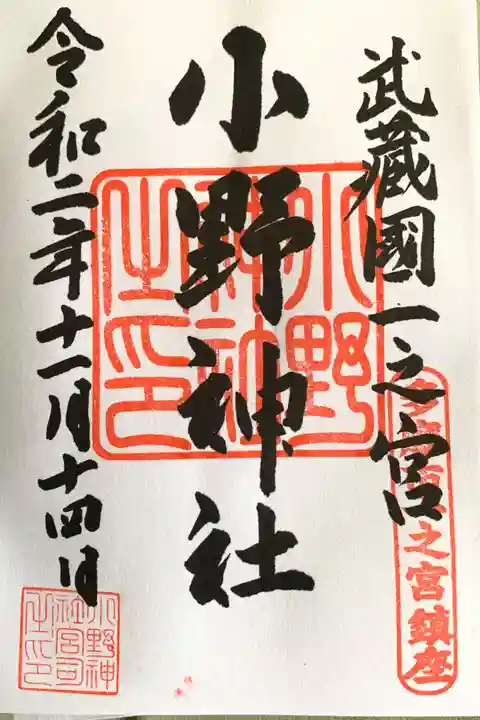 武藏國一之宮
小野神社
令和二年十一月十四日
小野神社之印
之宮鎮座
小野神社宮司之印